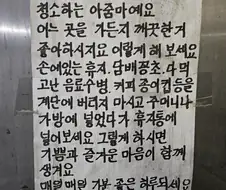 청소하는 아줌마예요
어느 곳을 가든지 깨끗한거
좋아하시지요 이렇게 해 보세요
손에있는 휴지. 담배꽁초. 다 먹
고난 음료수병. 커피 종이컵등을
계단에 버리지 마시고 주머니나
가방에 넣었다 가 휴지통에
넣어보세요 그렇게 하시면
기쁨과 즐거운 마음이 함께
생겨요
매일 매일 기분 좋은 하루되세요